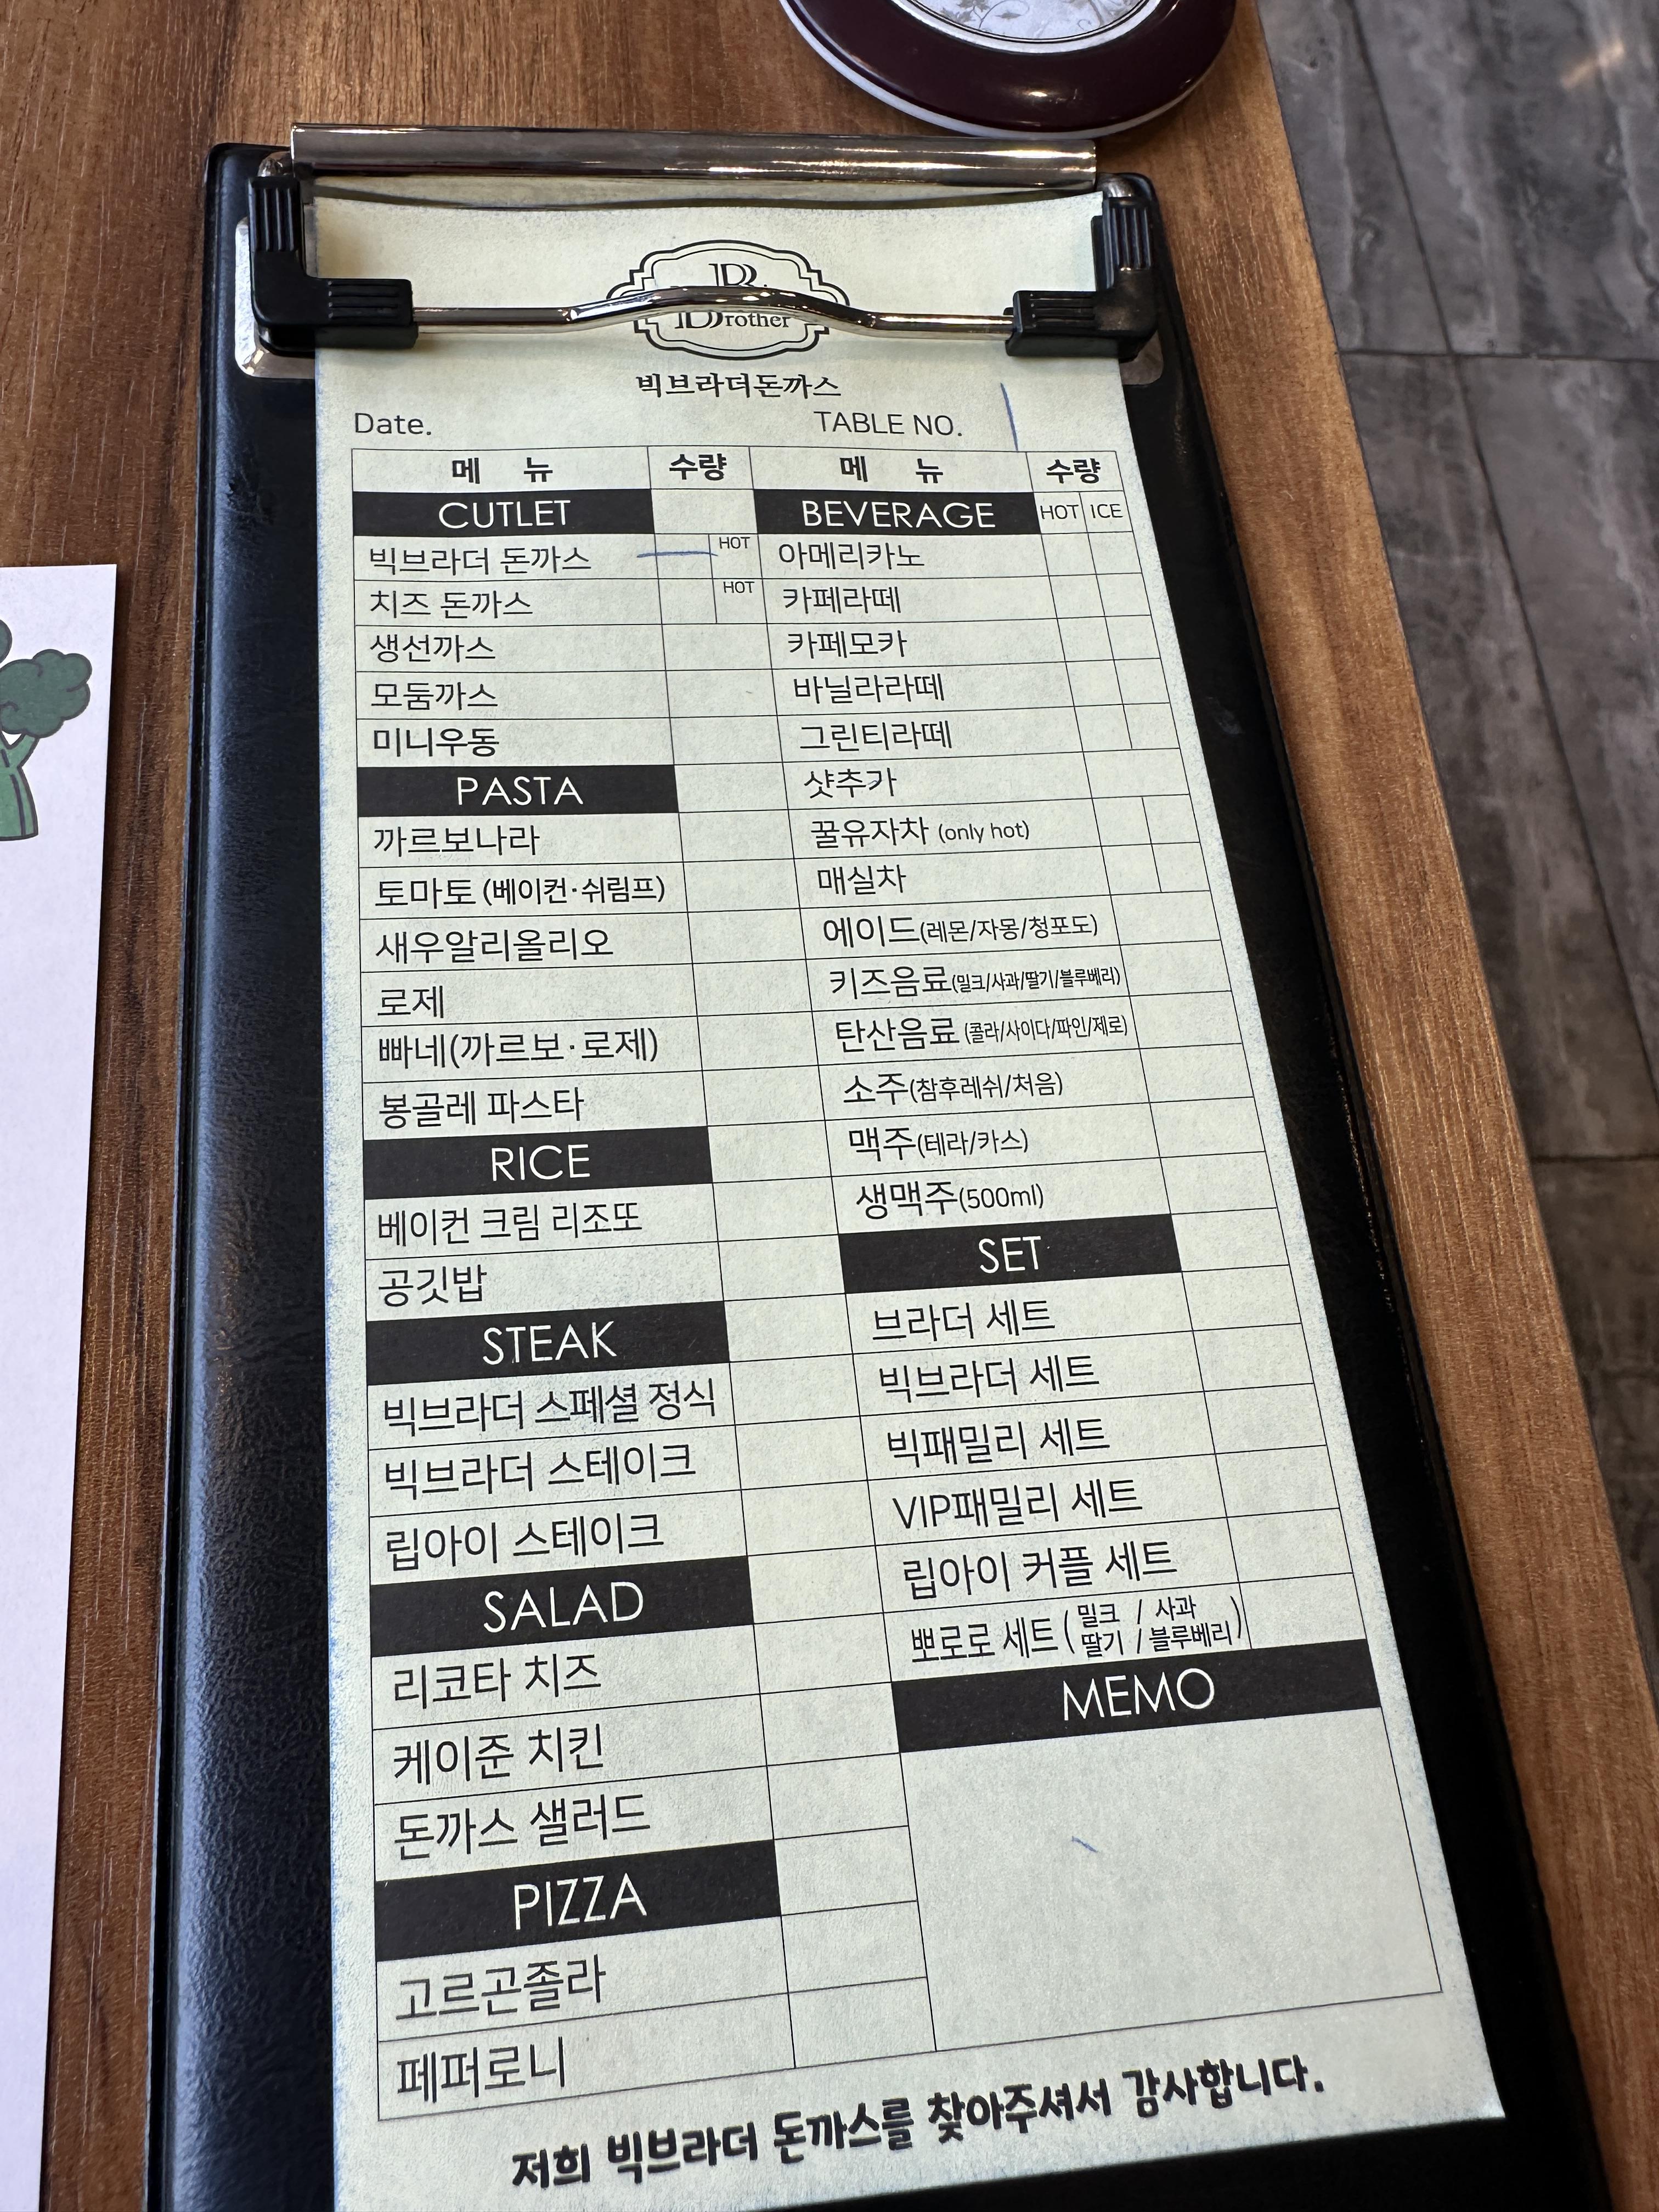 Brother
빅브라더돈까스
Date. TABLE NO.
메 뉴 수량 메 뉴 수량
CUTLET BEVERAGE HOT ICE
빅브라더 돈까스 HOT 아메리카노
치즈 돈까스 HOT 카페라떼
생선까스 카페모카
모둠까스 바닐라라떼
미니우동 그린티라떼
PASTA 샷추가
까르보나라 꿀유자차 (only hot)
토마토 (베이컨·쉬림프) 매실차
새우알리올리오 에이드(레몬/자몽/청포도)
로제 키즈음료(밀크/사과/딸기/블루베리)
빠네(까르보·로제) 탄산음료 (콜라/사이다/파인/제로)
봉골레 파스타 소주(참후레쉬/처음)
RICE 맥주(테라/카스)
베이컨 크림 리조또 생맥주(500ml)
공깃밥 SET
STEAK 브라더 세트
빅브라더 스페셜 정식 빅브라더 세트
빅브라더 스테이크 빅패밀리 세트
립아이 스테이크 VIP패밀리 세트
SALAD 립아이 커플 세트
리코타 치즈 뽀로로 세트 (밀크 / 사과 딸기 / 블루베리)
케이준 치킨 MEMO
돈까스 샐러드
PIZZA
고르곤졸라
페퍼로니
저희 빅브라더 돈까스를 찾아주셔서 감사합니다.